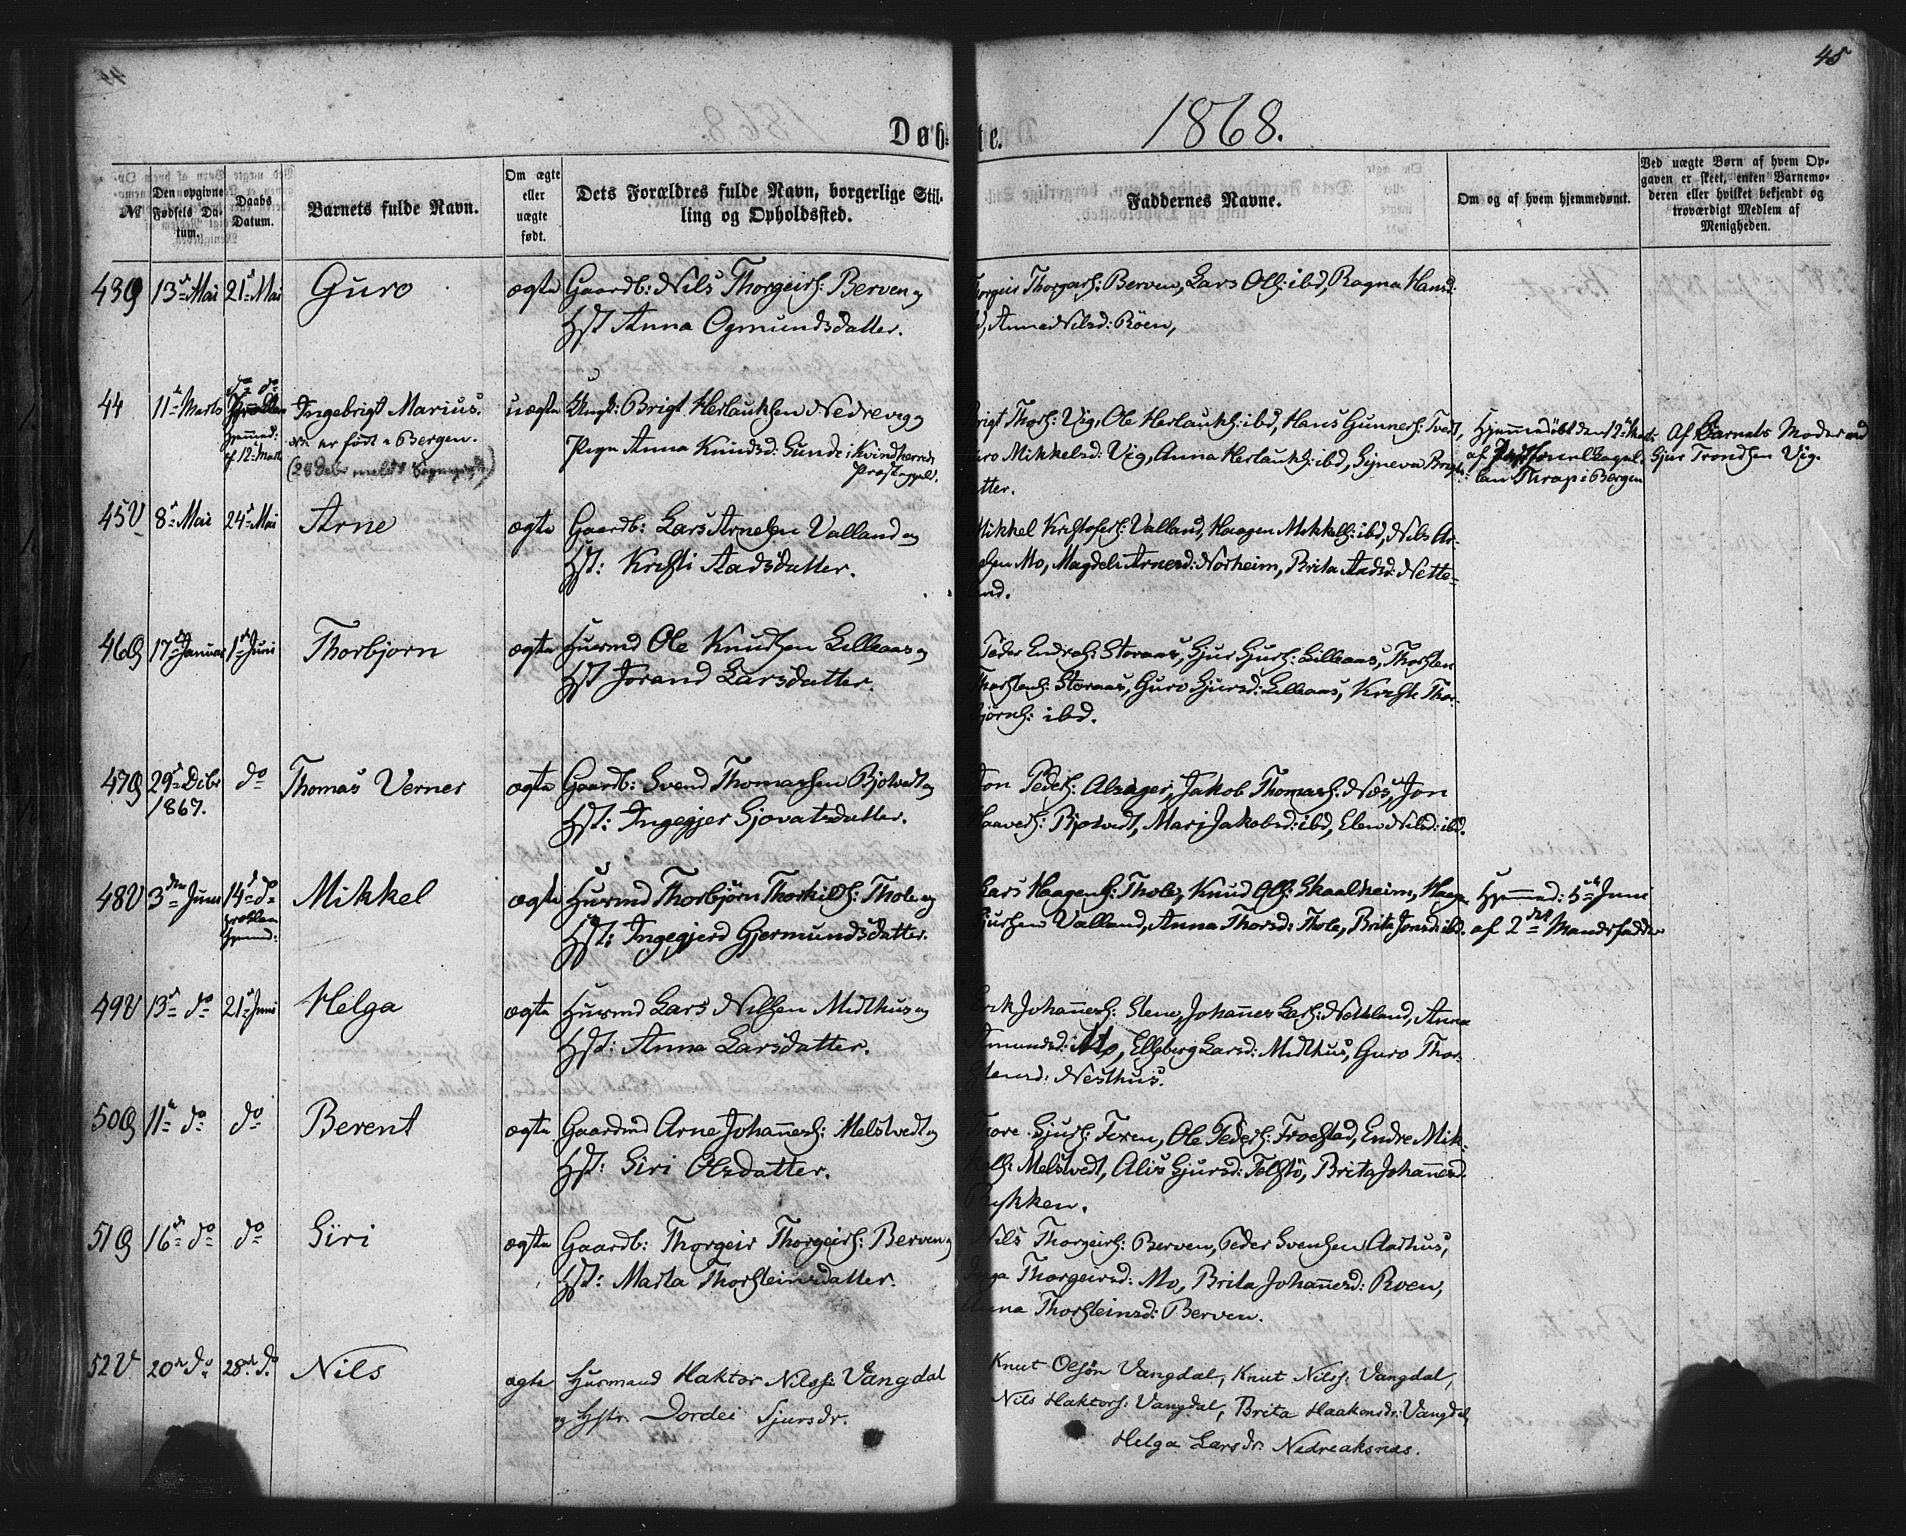 45
1868.
Døbte.
№
Den opgivne Fødsels Datum.
Daabs Datum.
Barnets fulde Navn.
Om ægte eller uægte født.
Dets Forældres fulde Navn, borgerlige Stilling og Opholdssted.
Faddernes Navne.
Om og af hvem hjemmedøbt.
Ved uægte Børn af hvem Opgaven er skeet, enten Barnemoderen eller hvilket bekjendt og troværdigt Medlem af Menigheden.
43 13 Mai 21 Mai Guro ægte Gaardb: Nils Thorgeirs: Berven og
Hst Anna Ogmundsdatter.
Thorgars: Berven, Lars Ols: ibd, Ragna Hansd:
Anna Nilsd: Röen,
44 11 Marts Ingebrigt Marius. uægte Ungk: Brigt Herlauksen Nedrevig og
er født i Bergen.
Pige Anna Knudsd: Sunde i Kvindherreds
Præstegjeld.
Hjemmed: 12 Marts
Thors: Vig, Ole Herlauks: ibd, Hans Gunners: Tvedt,
Mikkelsd: Vig, Anna Herlauks: ibd, Syneva
Hjemmedöbt den 12 Marts
af
Thrap i Bergen
Af Barnets Moder ved
Sjur Trondsen Vig.
45 V 8 Mai 24 Mai Arne ægte Gaardb: Lars Arnesen Valland og
Hst: Kristi Aadsdatter.
Mikkel Kristofers: Valland, Haagen Mikkels: ibd, Nils Ar-
Mo, Magdeli Arnesd: Norheim, Brita Aadsd: Nette-
land.
46 17 Januar 1 Juni Thorbjorn ægte Husmd Ole Knudsen Lilleaas og
Hst Jorand Larsdatter.
Peder Endres: Storaas, Sjur Sjurs: Lilleaas, Thorsten
Thorstens: Storaas, Guro Sjursd: Lilleaas, Kristi Thor-
bjørns: ibd.
47 29 Decbr do Thomas Verner ægte Gaardb: Svend Thomassen Bjotvedt og
1867.
Hst: Ingegjer Sjovatsdatter.
Jon Peders: Alsager, Jakob Thomass: Næs, Jon
Haavers: Bjotvedt, Mari Jakobsd: ibd, Elen Nilsd: ibd.
48 V 3 Juni 14 do Mikkel ægte Husmd Thorbjörn Thorkilds: Thole og
Hst: Ingegjerd Gjermundsdatter.
Lars Haagens: Thole, Knud Ols: Skaalheim, Haagen
Sjursen Valland, Anna Thorsd: Thole, Brita Jonsd: ibd.
Hjemmed: 5 Juni
af 2 Mandsfadder
49 V 13 do 21 Juni Helga ægte Husmd Lars Nilsen Midthus og
Hst: Anna Larsdatter.
Erik Johannes: Stene, Johannes Lars: Netland, Anna
Amundsd: Mo, Elseberg Larsd: Midthus, Guro Thor-
stensd: Nesthus.
50 11 do do Berent ægte Gaardmd Arne Johannes: Melstvedt og
Hst: Siri Olsdatter.
Thore Sjurs: Feren, Ole Peders: Trostad, Endre Mik-
kels: Melstvedt, Alis Sjursd: Telstö, Brita Johannesd:
51 16 do do Siri ægte Gaardb: Thorgeir Thorgeirs: Berven og
Hst: Marta Thorsteinsdatter.
Nils Thorgeirs: Berven, Peder Svensen Aarhus,
Inga Thorgeirsd: Mo, Brita Johannesd: Roen,
Anna Thorsteinsd: Berven.
52 V 20 do 28 do Nils ægte Husmand Haktor Nilss: Vangdal
og Hstr. Dordei Sjursdr.
Knut Olsön Vangdal, Knut Nilss: Vangdal,
Nils Haktors: Vangdal, Brita Haakonsdr: Vangdal
Helga Larsdr. Nedreaksnes.